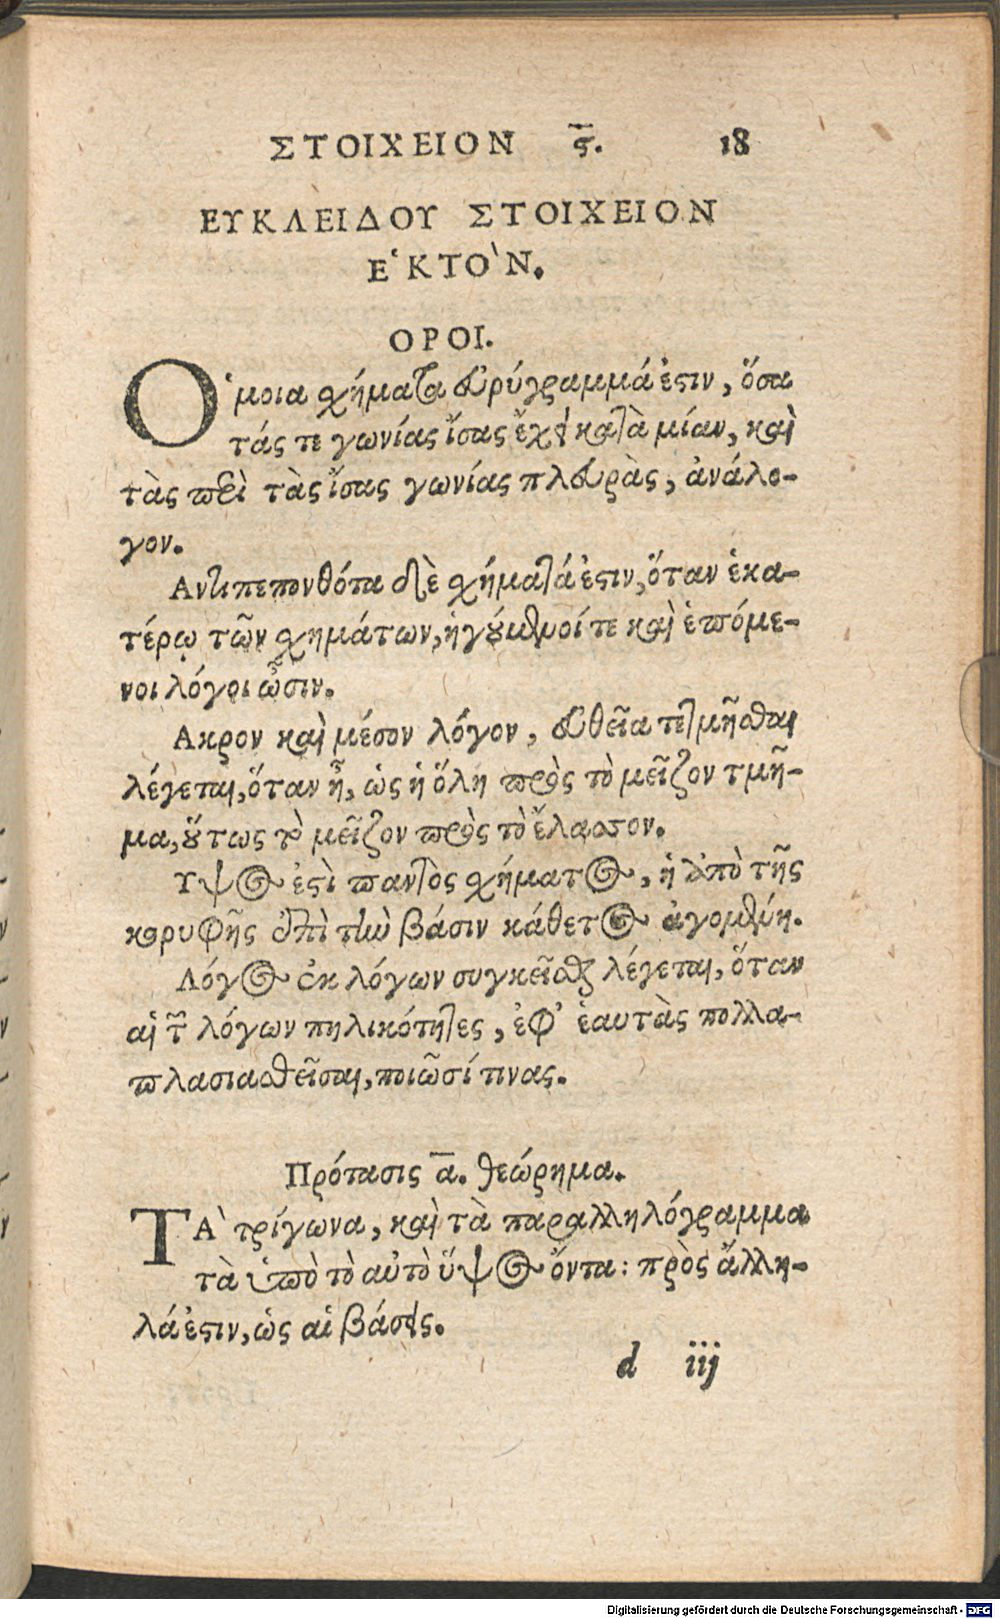 ΣΤΟΙΧΕΙΟΝ ϛ̄. 18
ΕΥΚΛΕΙΔΟΥ ΣΤΟΙΧΕΙΟΝ
ΕʽΚΤΟ`Ν.
ΟΡΟΙ.
Ὅμοια χήματα εὐρύγραμμά ἐστιν, ὅσα
τάς τε γωνίας ἴσας ἔχει κατὰ μίαν, καὶ
τὰς περὶ τὰς ἴσας γωνίας πλευρὰς, ἀνάλο-
γον.
Αντιπεπονθότα δὲ χήματά ἐστιν, ὅταν ἑκα-
τέρῳ τῶν χημάτων, ἡγούμενοί τε καὶ ἑπόμε-
νοι λόγοι ὦσιν.
Ακρον καὶ μέσον λόγον, εὐθεῖα τετμῆσθαι
λέγεται, ὅταν ᾖ, ὡς ἡ ὅλη πρὸς τὸ μεῖζον τμῆ-
μα, οὕτως τὸ μεῖζον πρὸς τὸ ἔλασσον.
Υψος ἐστὶ παντὸς χήματος, ἡ ἀπὸ τῆς
κορυφῆς ἐπὶ τὴν βάσιν κάθετος ἀγομένη.
Λόγος ἐκ λόγων συγκεῖσθαι λέγεται, ὅταν
αἱ τῶν λόγων πηλικότητες, ἐφ' ἑαυτὰς πολλα-
πλασιασθεῖσαι, ποιῶσί τινας.
Πρότασις ᾱ. θεώρημα.
ΤΑ` τρίγωνα, καὶ τὰ παραλληλόγραμμα
τὰ ὑπὸ τὸ αὐτὸ ὕψος ὄντα: πρὸς ἄλλη-
λά ἐστιν, ὡς αἱ βάσεις.
d iij
Digitalisierung gefördert durch die Deutsche Forschungsgemeinschaft - DFG